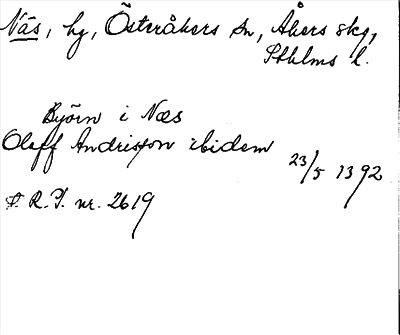 Näs, by, Österåkers sn, Åkers skg,
Sthlms l.
Byörn i Næs
Oleff Andrisson ibidem
23/5 1392
S. R. P. nr. 2619